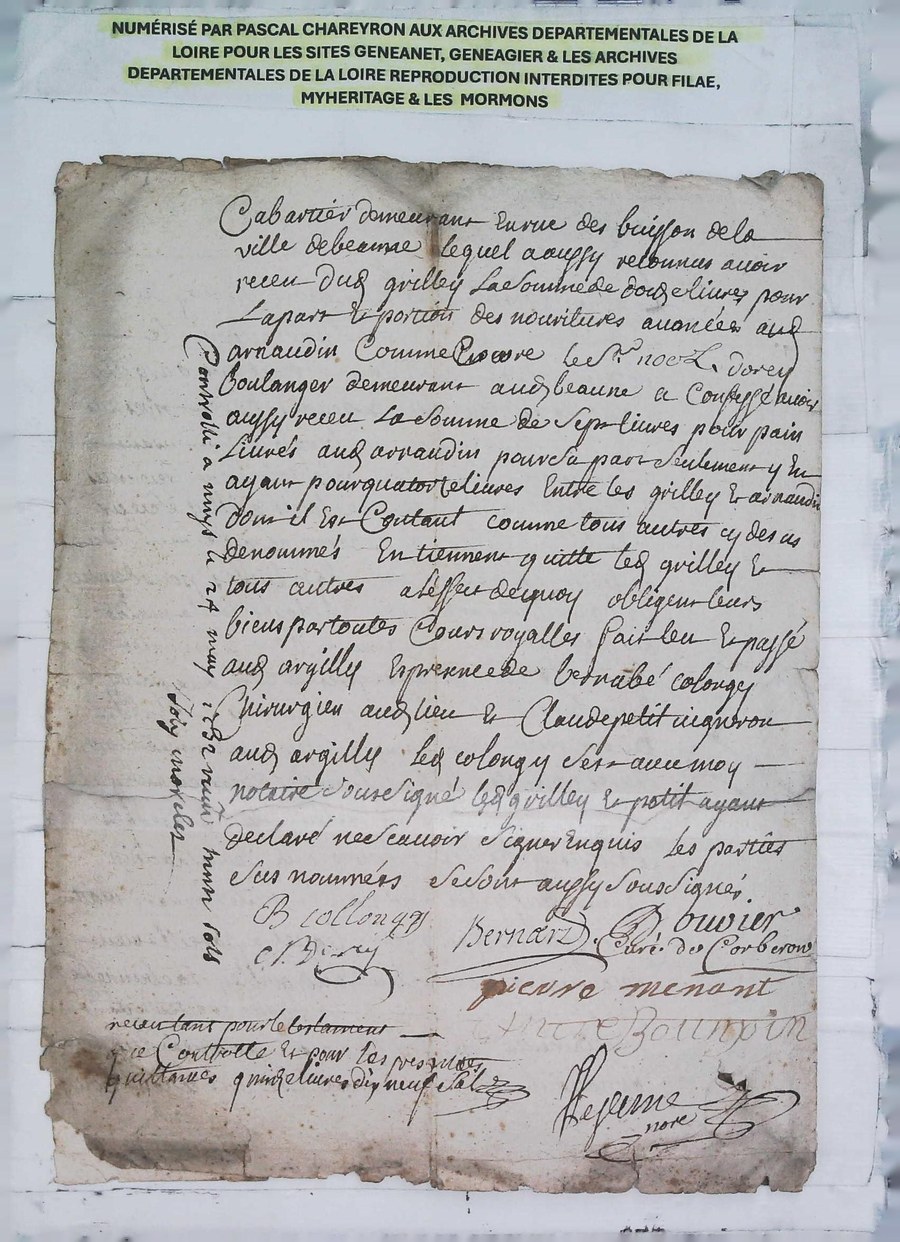 NUMÉRISÉ PAR PASCAL CHAREYRON AUX ARCHIVES DEPARTEMENTALES DE LA
LOIRE POUR LES SITES GENEANET, GENEAGIER & LES ARCHIVES
DEPARTEMENTALES DE LA LOIRE REPRODUCTION INTERDITES POUR FILAE,
MYHERITAGE & LES MORMONS
Cabartier demeurant en rue des buisson de la
ville de beaune lequel a aussy reconnus avoir
receu dud grilley la somme de douze livres pour
la part et portion des nouritures avancées aud
arnaudin comme encore le Sr. noel dorey
boulanger demeurant aud beaune a confessé avoir
aussy receu la somme de sept livres pour pain
livrés aud arnaudin pour sa part seulement y en
ayant pour quatorze livres entre les grilley et arnaudin
dont il est contant comme tous autres cy desus
denommés en tiennent quitte led grilley et
tous autres a leffect de quoy obligent leurs
biens par toutes cours royalles fait leu et passé
aud argilly en presence de bernabé colongy
chirurgien aud lieu et Claude petit vigneron
aud argilly led colongy sest avec moy
notaire soussigné led grilley et petit ayant
declaré ne scavoir signer enquis les parties
sus nommées se sont aussy soussignés
B collongy
Bernard. Bouvier
Curé de Corberon
pierre menant
receu tant pour le testament
que Controlle et pour les presentes
quittances quinze livres dix neuf sols
Lejeune
nore
Controllé a nuys le 24 may